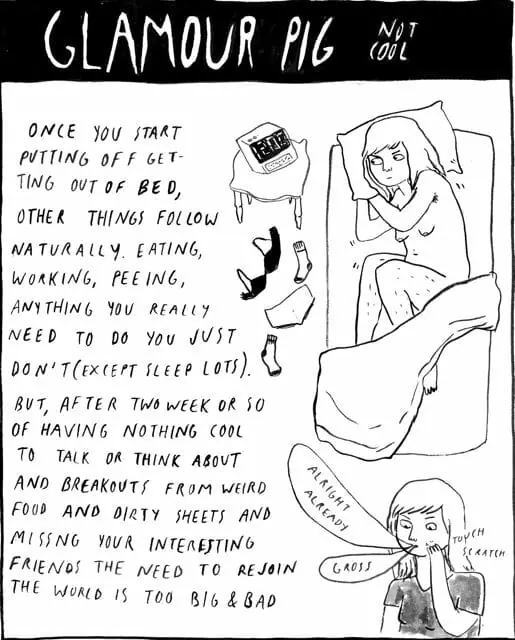 GLAMOUR PIG
NOT
COOL
ONCE YOU START
PUTTING OFF GET-
TING OUT OF BED,
OTHER THINGS FOLLOW
NATURALLY. EATING,
WORKING, PEEING,
ANYTHING YOU REALLY
NEED TO DO YOU JUST
DON'T (EXCEPT SLEEP LOTS).
BUT, AFTER TWO WEEK OR SO
OF HAVING NOTHING COOL
TO TALK OR THINK ABOUT
AND BREAKOUTS FROM WEIRD
FOOD AND DIRTY SHEETS AND
MISSNG YOUR INTERESTING
FRIENDS THE NEED TO REJOIN
THE WORLD IS TOO BIG & BAD
ALRIGHT
ALREADY
GROSS
TOUCH
SCRATCH